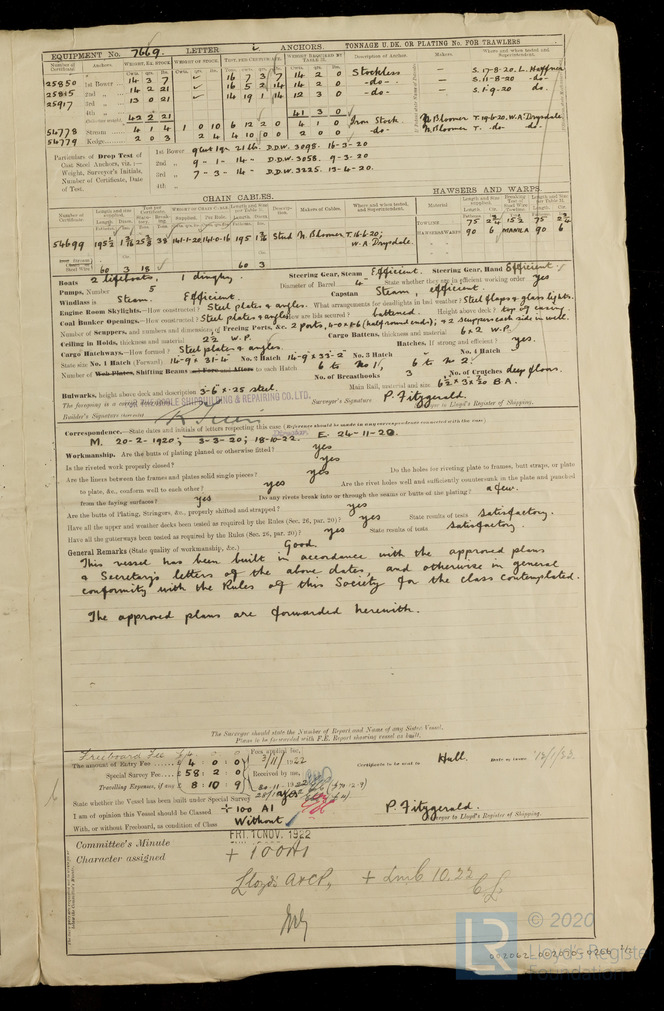 EQUIPMENT No. 7669. LETTER i ANCHORS. TONNAGE U. DK. OR PLATING No. FOR TRAWLERS
Number of Certificate. Anchors. WEIGHT, EX. STOCK. WEIGHT OF STOCK. TEST, PER CERTIFICATE. WEIGHT REQUIRED BY TABLE 31. Description of Anchor. Makers. Where and when tested and Superintendent.
25850 1st Bower 14 3 7 16 7 3 7 14 2 0 Stockless — S. 17-8-20. L. Haffner
25815 2nd 14 2 21 16 5 2 14 14 2 0 -do- — S. 11-8-20 -do-
25917 3rd 13 0 21 14 19 1 14 12 3 0 -do- — S. 1-9-20 do.
4th
42 2 21 41 3 0
54778 Stream 4 1 4 1 0 10 6 12 2 0 4 1 0 Iron Stock N. Bloomer T. 19.6.20. W.A. Drysdale
54779 Kedge 2 0 3 2 4 4 10 0 0 2 0 0 -do- N. Bloomer T. do. -do-
Particulars of Drop Test of Cast Steel Anchors, viz.:— Weight, Surveyor's Initials, Number of Certificate, Date of Test.
1st Bower 9 cwt 1 qr 21 lb. D.D.W. 3098. 16-3-20
2nd 9 - 1 - 14 D.D.W. 3058. 9-3-20
3rd 7 - 3 - 14 D.D.W. 3225. 13-4-20.
4th
CHAIN CABLES. HAWSERS AND WARPS.
54699 195½ 1 9/16 38 141-1-20 141-0-16 195 1 9/16 Stud N. Bloomer T. 19.6.20; W.A. Drysdale. TOWLINE 75 75 HAWSERS & WARPS 90 6 MANILA 90 6
60 3 18 60 3
Boats 2 lifeboats, 1 dinghy. Steering Gear, Steam Efficient. Steering Gear, Hand Efficient.
Pumps, Number 5 Diameter of Barrel 4" State whether they are in efficient working order yes
Windlass is Steam. Efficient. Capstan Steam, efficient.
Engine Room Skylights.—How constructed? Steel plates & angles. What arrangements for deadlights in bad weather? Steel flaps & glass lights.
Coal Bunker Openings.—How constructed? Steel plates & angles How are lids secured? battened. Height above deck? top of casing.
Number of Scuppers, and numbers and dimensions of Freeing Ports, &c. 2 ports, 4-0 x 1-6 (half round ends); & 2 scuppers each side in well.
Ceiling in Holds, thickness and material 2½ W.P. Cargo Battens, thickness and material 6 x 2 W.P.
Cargo Hatchways.—How formed? Steel plates & angles. Hatches. If strong and efficient? yes.
State size No. 1 Hatch (Forward) 14-9 x 31-4 No. 2 Hatch 14-9 x 33-2 No. 3 Hatch No. 4 Hatch
Number of Web Plates, Shifting Beams and Fore and Afters to each Hatch 6 to No 1, 6 to No 2.
No. of Breasthooks 3 No. of Crutches deep floors.
Bulwarks, height above deck and description 3-6 x ·25 steel. Main Rail, material and size 6½ x 3 x ·20 B.A.
FOR THE POOLE SHIPBUILDING & REPAIRING CO. LTD.
The foregoing is a correct
Builder's Signature Director. Surveyor's Signature P. Fitzgerald. Surveyor to Lloyd's Register of Shipping.
Correspondence.—State dates and initials of letters respecting this case (Reference should be made in any correspondence connected with the case)
M. 20-2-1920; 3-3-20; 18-10-22. E 24-11-20.
Workmanship. Are the butts of plating planed or otherwise fitted? yes
Is the riveted work properly closed? yes
Are the liners between the frames and plates solid single pieces? yes Do the holes for riveting plate to frames, butt straps, or plate
to plate, &c., conform well to each other? yes Are the rivet holes well and sufficiently countersunk in the plate and punched
from the faying surfaces? yes Do any rivets break into or through the seams or butts of the plating? a few.
Are the butts of Plating, Stringers, &c., properly shifted and strapped? yes
Have all the upper and weather decks been tested as required by the Rules (Sec. 26, par. 20)? yes State results of tests Satisfactory.
Have all the gutterways been tested as required by the Rules (Sec. 26, par. 20)? yes State results of tests Satisfactory.
General Remarks (State quality of workmanship, &c.) Good.
This vessel has been built in accordance with the approved plans
& Secretary's letters of the above dates, and otherwise in general
conformity with the Rules of this Society for the class contemplated.
The approved plans are forwarded herewith.
The Surveyor should state the Number of Report and Name of any Sister Vessel.
Plans to be forwarded with F.E. Report showing vessel as built.
Freeboard Fee £4
The amount of Entry Fee £ 4 : 0 : 0 Fees applied for, 3/11/1922 Certificate to be sent to Hull. Date of issue 13/1/23.
Special Survey Fee £ 58 : 2 : 0 Received by me,
Travelling Expenses, if any £ 8 : 10 : 9 20-11-1922
State whether the Vessel has been built under Special Survey yes
I am of opinion this Vessel should be Classed + 100 A1 P. Fitzgerald.
With, or without Freeboard, as condition of Class Without Surveyor to Lloyd's Register of Shipping.
Committee's Minute FRI. 10 NOV. 1922
Character assigned + 100A1
Lloyd's A & CP, + LMC 10.22
© 2020
LR Lloyd's Register Foundation
002062-002070-0266